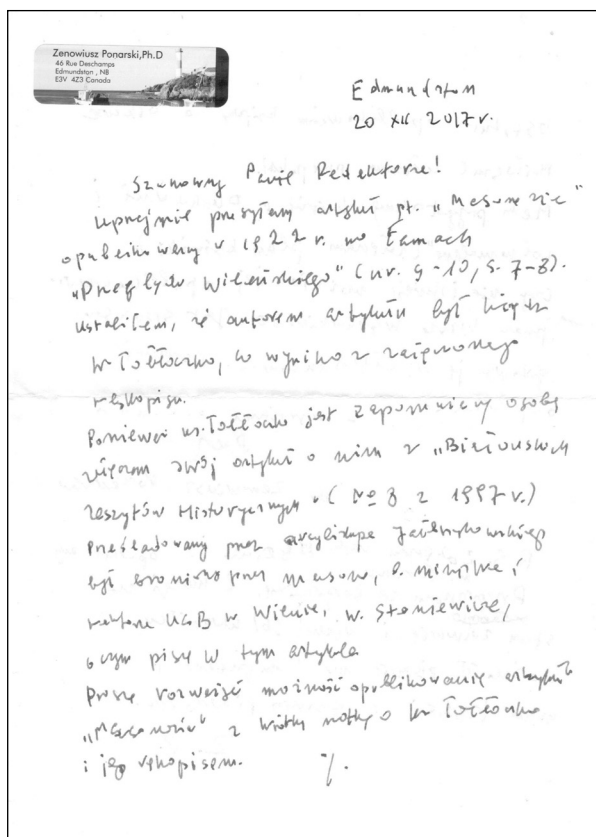 Zenowiusz Ponarski,Ph.D
46 Rue Deschamps
Edmundston , NB
E3V 4Z3 Canada
Edmundston
20 XII 2017 r.
Szanowny Panie Redaktorze!
Uprzejmie przesyłam artykuł pt. „Masoneria"
opublikowany w 1922 r. na łamach
„Przeglądu Wileńskiego" (nr. 9-10, s. 7-8).
Ustaliłem, że autorem artykułu był ksiądz
W Tołłoczko, co wynika z załączonego
rękopisu.
Ponieważ ks. Tołłoczko jest zapomnianą osobą
załączam swój artykuł o nim z „Białoruskich
Zeszytów Historycznych" (№ 8 z 1997 r.)
Prześladowany przez arcybiskupa Jałbrzykowskiego
był broniony przez masonów, i
rektora USB w Wilnie, W. Staniewicza,
o czym piszę w tym artykule
Proszę rozważyć możność opublikowania artykułu
z krótką notką o ks Tołłoczko
i jego rękopisem. %.